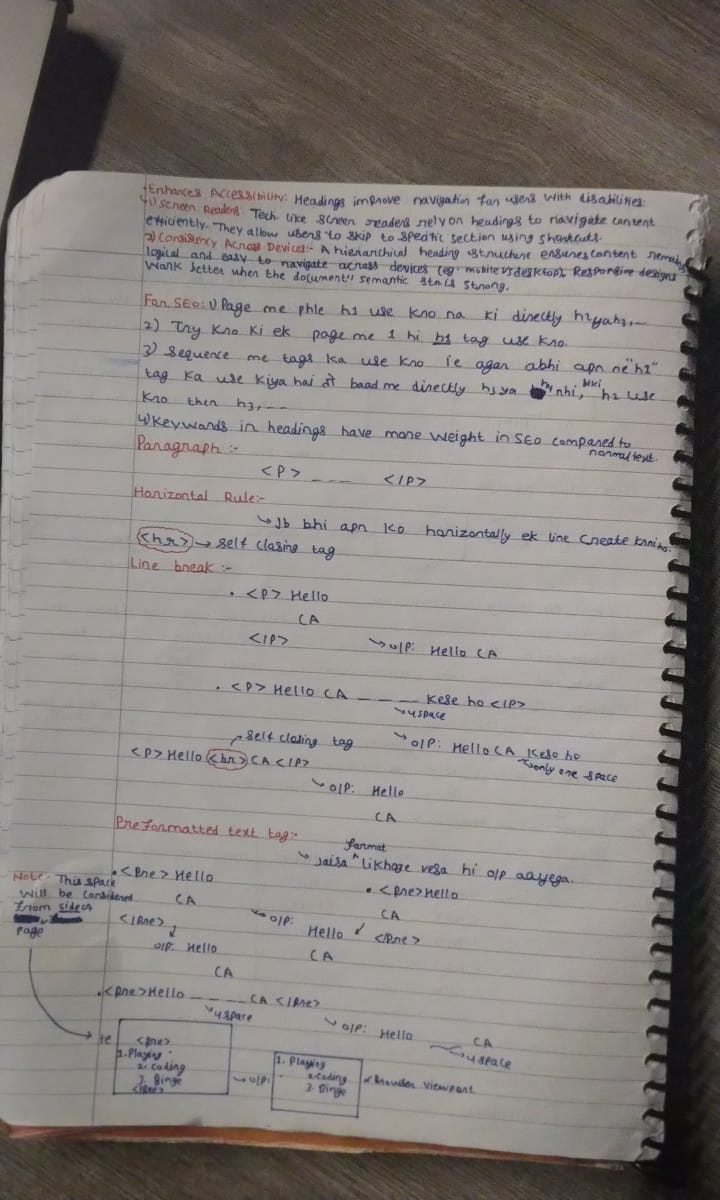 Enhances Accessibility: Headings improve navigation for users with disabilities:
1) Screen Readers: Tech. like screen readers rely on headings to navigate content
efficiently. They allow users to skip to specific section using shortcuts.
2) Consistency Across Devices:- A hierarchical heading structure ensures content remains
logical and easy to navigate across devices (eg. mobile vs desktop). Responsive designs
work better when the document's semantic is strong.
For SEO: 1) Page me phle h1 use kro na ki directly h2 ya h3,---
2) Try kro ki ek page me 1 hi h1 tag use kro.
3) Sequence me tags ka use kro ie agar abhi apn ne "h1"
tag ka use kiya hai तो baad me directly h3 ya h4 nhi, blki h2 use
kro then h3,---
4) Keywords in headings have more weight in SEO compared to
normal text.
Paragraph :-
<P> _ _ _ </P>
Horizontal Rule:-
↳ Jb bhi apn ko horizontally ek line create krni ho.
<hr> → self closing tag
Line break :-
• <P> Hello
CA
</P> ↳ O/P: Hello CA
• <P> Hello CA _ _ _ _ kese ho </P>
↳ 4 space
↗ self closing tag ↳ O/P: Hello CA kese ho
<P> Hello <br> CA </P> ↳ only one space
↳ O/P: Hello
CA
Preformatted text tag:-
format
↳ jaisa ^ likhoge vesa hi o/p aayega.
• <pre> Hello
CA
</pre>
↓
O/P: Hello
CA
• <pre> Hello
CA
</pre>
↳ O/P: Hello
CA
Note:- This space
will be considered
from sides of
page
• <pre> Hello _ _ _ _ CA </pre>
↳ 4 space ↳ O/P: Hello ____ CA
↳ 4 space
ie <pre>
1. Playing
2. Coding
3. Binge
</pre>
→ O/P:
1. Playing
2. Coding
3. Binge
↙ Browser viewport